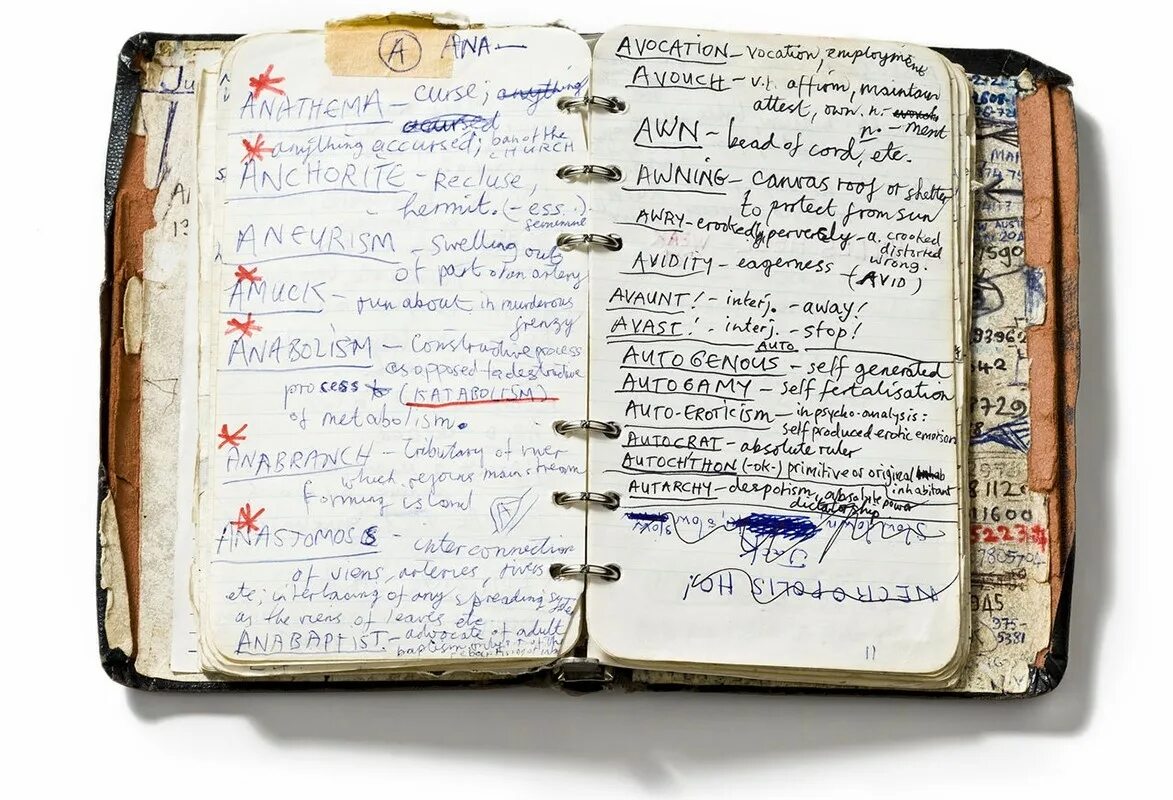 A ANA—
ANATHEMA – curse; anything
accursed
anything accursed; ban of the
CHURCH
ANCHORITE – Recluse,
hermit. (-ess.)
feminine
ANEURISM – Swelling out
of part of an artery
AMUCK – run about in murderous
frenzy
ANABOLISM – Constructive process
as opposed to destructive
process (KATABOLISM)
of metabolism.
ANABRANCH – tributary of river
which rejoins main stream
forming island
A
ANASTOMOS – interconnection
of viens, arteries, rivers
etc; interlacing of any spreading
as the viens of leaves etc
ANABAPTIST. – advocate of adult
baptism only
AVOCATION – vocation, employment
AVOUCH – v.t. affirm, maintain
attest, own. n. –
n. – ment
AWN – bead of cord, etc.
AWNING – canvas roof or shelter
to protect from sun
AWRY – crookedly, perversely – a. crooked
distorted
wrong.
AVIDITY – eagerness (AVID)
AVAUNT! – interj. – away!
AVAST! – interj. – stop!
AUTO
AUTOGENOUS – self generated
AUTOGAMY – self fertalisation
AUTO-EROTICISM – in psycho-analysis:
self produced erotic emotion
AUTOCRAT – absolute ruler
AUTOCHTHON (-ok-) primitive or original
inhabitant
AUTARCHY – despotism, absolute power
dictatorship
Jack
NECROPOLIS HO!
11